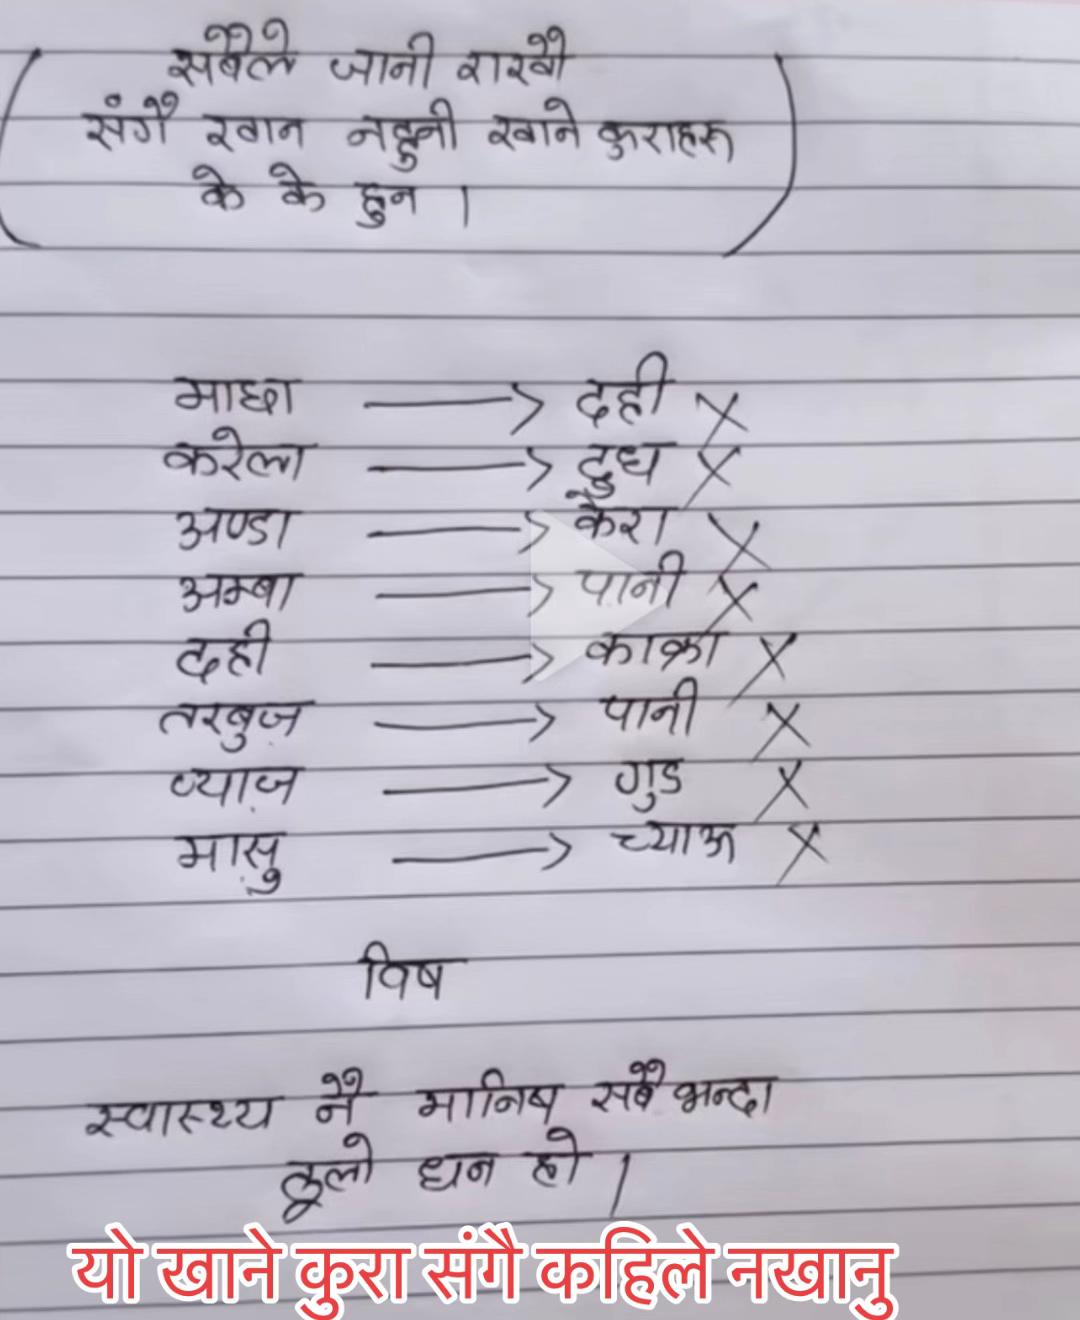 सबैले जानी राखौ
संगै खान नहुनी खाने कुराहरू
के के हुन ।
माछा → दही ×
करेला → दुध ×
अण्डा → केरा ×
अम्बा → पानी ×
दही → काक्रा ×
तरबुज → पानी ×
प्याज → गुड ×
मासु → च्याऊ ×
विष
स्वास्थ्य नै मानिष सबै भन्दा
ठुलो धन हो ।
यो खाने कुरा संगै कहिले नखानु